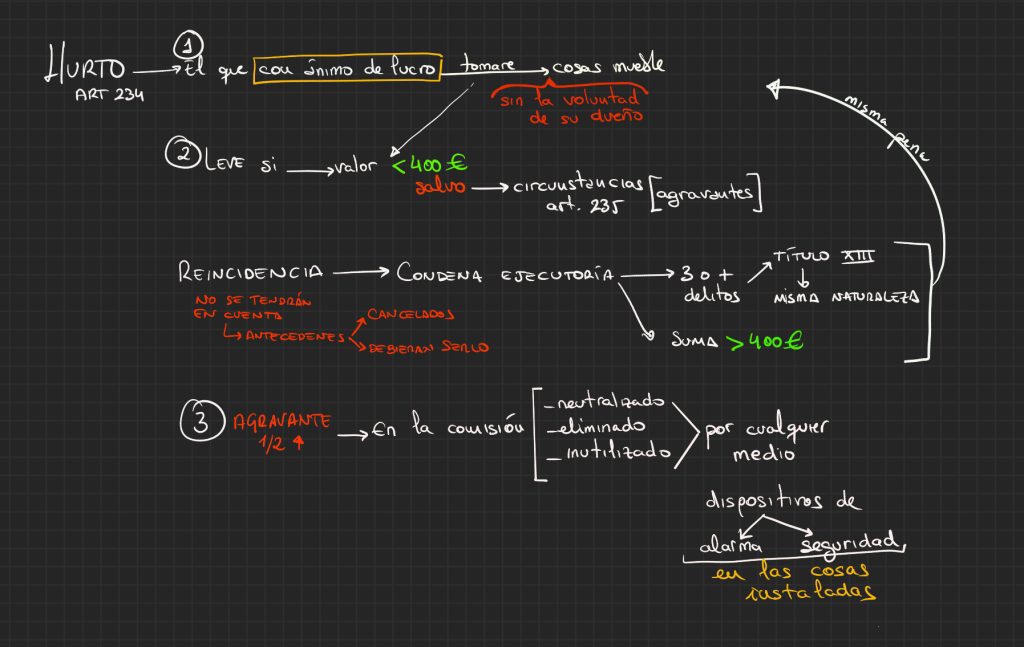 HURTO
ART 234
1
El que con ánimo de lucro tomare cosas mueble
sin la voluntad
de su dueño
misma pena
2 LEVE si valor < 400 €
salvo
circunstancias
art. 235
[agravantes]
REINCIDENCIA
NO SE TENDRÁN
EN CUENTA
ANTECEDENTES
CANCELADOS
DEBIERAN SERLO
CONDENA EJECUTORÍA
3 o +
delitos
TÍTULO XIII
MISMA NATURALEZA
SUMA > 400 €
3
AGRAVANTE
1/2
En la comisión
- neutralizado
- eliminado
- inutilizado
por cualquier
medio
dispositivos de
alarma seguridad,
en las cosas
instaladas